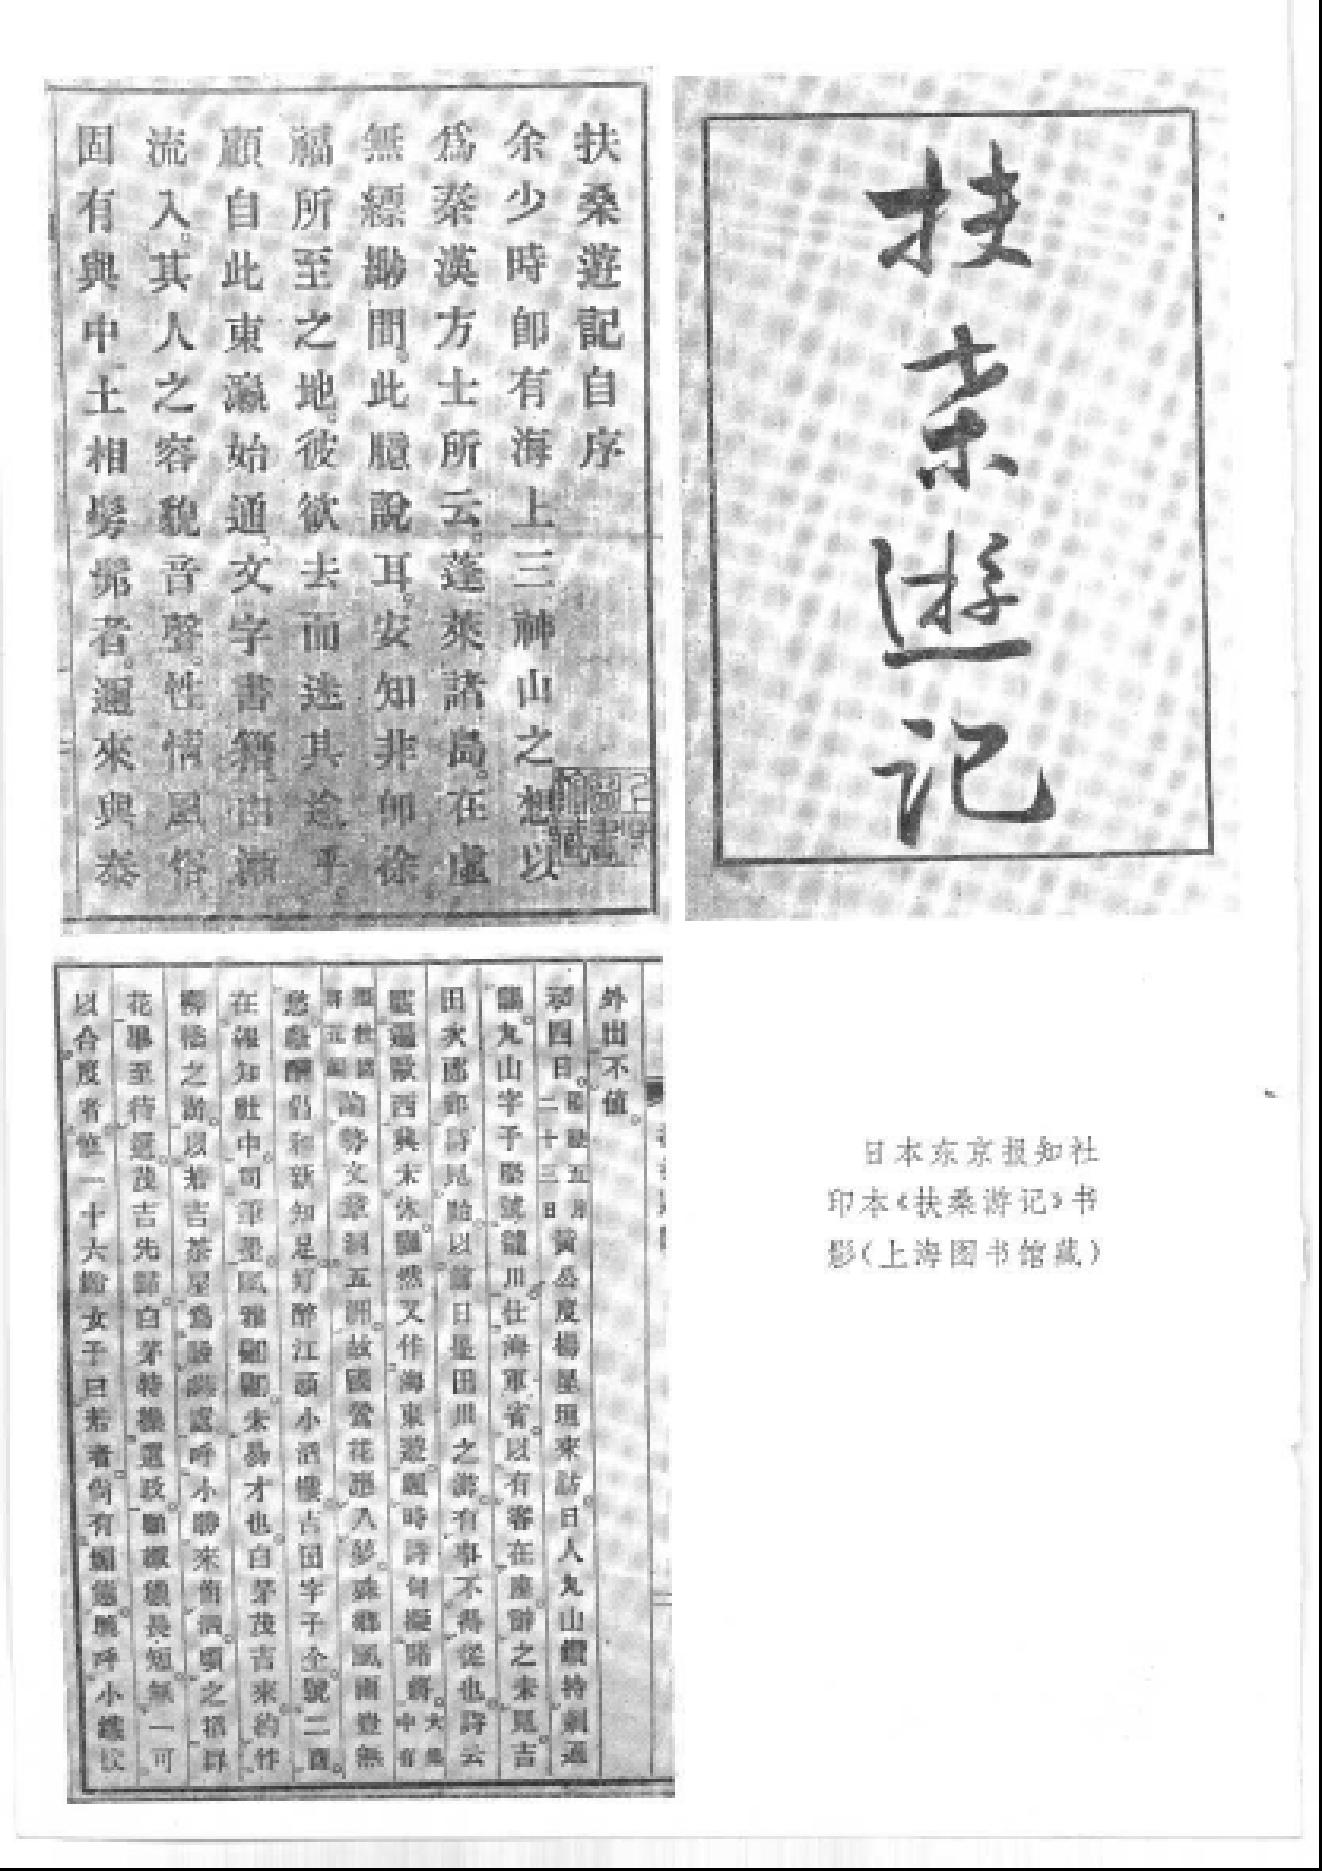 扶桑遊記
扶桑遊記自序
余少時卽有海上三神山之想以
爲秦漢方士所云蓬萊諸島在虛
無縹緲間此臆說耳安知非卽徐
福所至之地彼欲去而迷其途乎
顧自此東瀛始通文字書籍由漸
流入其人之容貌音聲性情風俗
固有與中土相髣髴者邇來與泰
外出不值
初四日 二十三日 黃公度楊星垣來訪日人丸山鑽特刺通
謁丸山字子堅號龍川仕海軍省以有客在座辭之未見吉
田次郎郎詩見貽以前日墨田川之游有事不得從也詩云
踪遍歐西興未休飄然又作海東遊 時詩句 大 中有
論勢文章洞五洲故國鶯花應入夢 鄉風雨豈無
愁 酬倡和新知足好醉江頭小酒樓古田字子全號二酉
在報知社中司筆墨風雅 未易才也白茅茂吉來約作
柳橋之游以若吉茶屋爲 處呼小勝來侑酒頃之招群
花畢至待選茂吉先歸白茅特操選政 長短無一可
以合度者惟一十六齡女子曰若者尚有 呼小鐵校
日本东京报知社
印本《扶桑游记》书
影(上海图书馆藏)